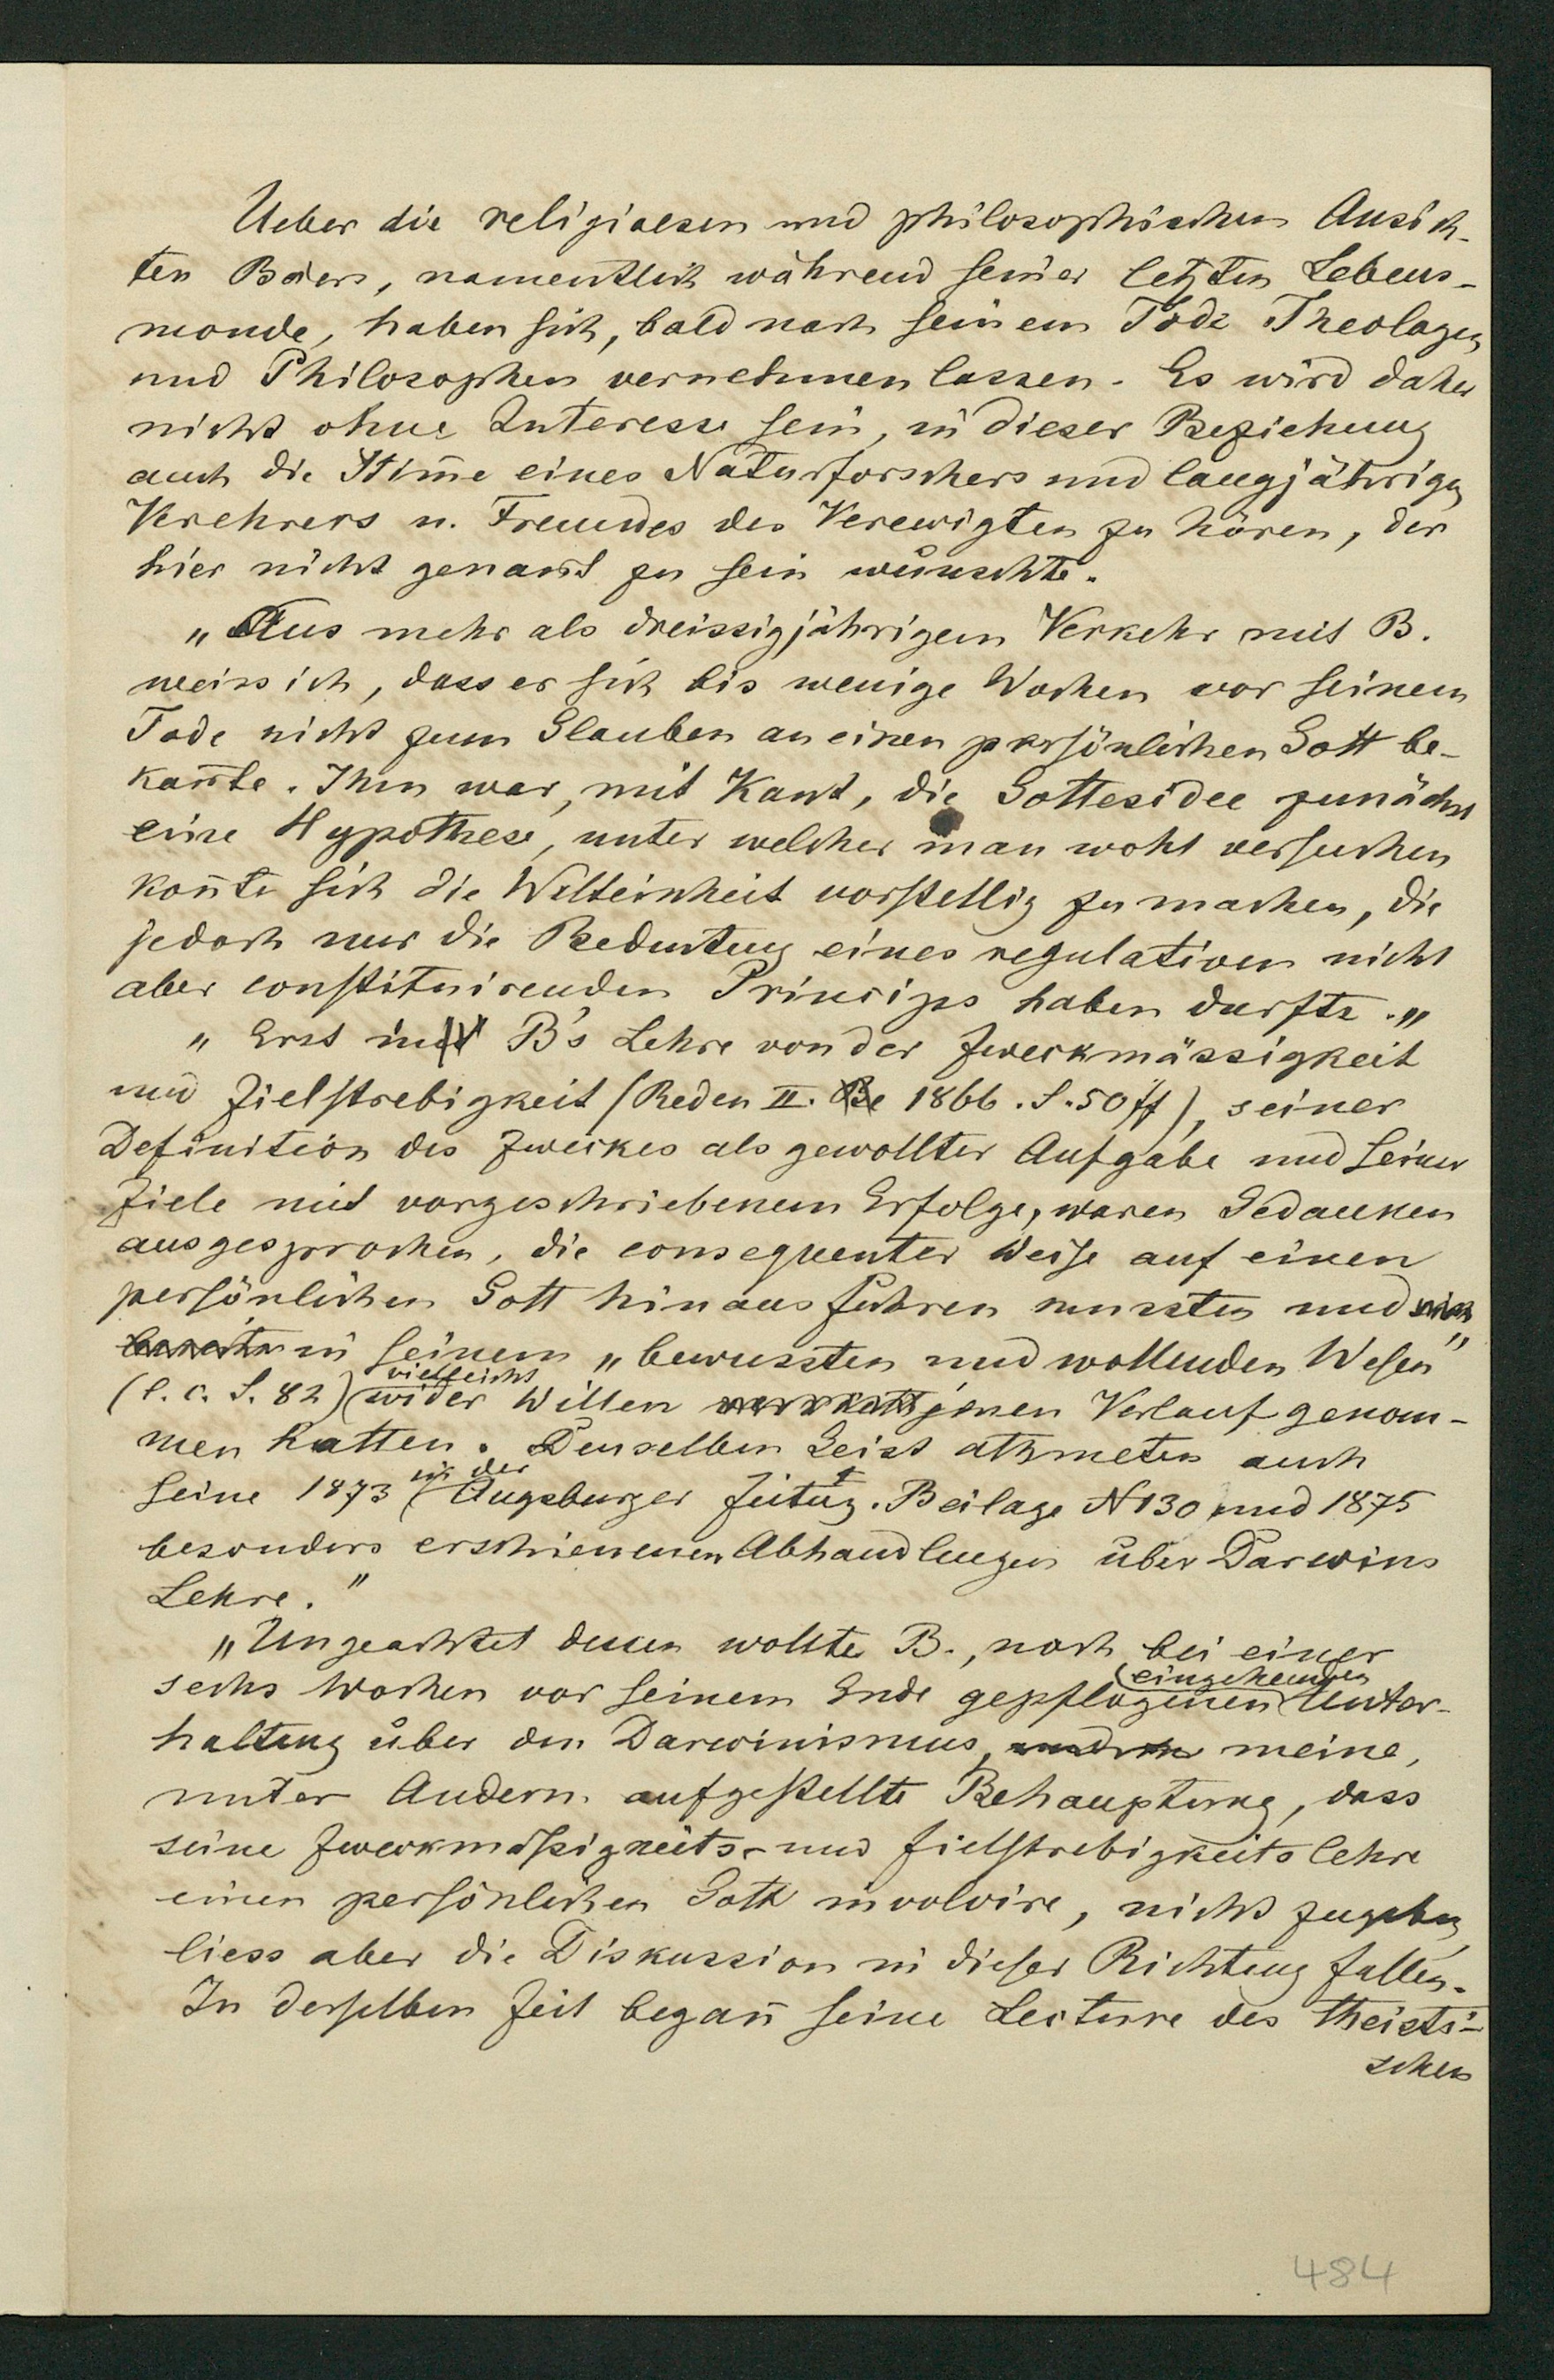 Ueber die religioesen und philosophischen Ansich-
ten Baers, namentlich während seiner letzten Lebens-
monde, haben sich, bald nach seinem Tode Theologen
und Philosophen vernehmen lassen. Es wird daher
nicht ohne Interesse sein, in dieser Beziehung
auch die Stim̄e eines Naturforschers und langjährigen
Verehrers u. Freundes des Verewigten zu hören, der
hier nicht genan̄t zu sein wünschte.
„Aus mehr als dreissigjährigem Verkehr mit B.
weiss ich, dass er sich bis wenige Wochen vor seinem
Tode nicht zum Glauben an einen persönlichen Gott be-
kan̄te. Ihm war, mit Kant, die Gottesidee zunächst
eine Hypothese, unter welcher man wohl versuchen
kon̄te sich die Welteinheit vorstellig zu machen, die
jedoch nur die Bedeutung eines regulativen nicht
aber constituirenden Princips haben durfte.„
„Erst in B's Lehre von der Zweckmässigkeit
und Zielstrebigkeit (Reden II. 1866. S. 50 ff), seiner
Definition des Zweckes als gewollter Aufgabe und seiner
Ziele mit vorgeschriebenem Erfolge, waren Gedanken
ausgesprochen, die consequenter Weise auf einen
persönlichen Gott hinaus führen mussten und
bereits in seinem „bewussten und wollenden Wesen"
(l. c. S. 82) vielleicht wider Willen jenen Verlauf genom-
men hatten. Denselben Geist athmeten auch
seine 1873 in der Augsburger Zeitug. Beilage N 130 und 1875
besonders erschienenen Abhandlungen über Darwins
Lehre."
„Ungeachtet dessen wollte B., noch bei einer
sechs Wochen vor seinem Ende gepflogenen eingehenden Unter-
haltung über den Darwinismus, meine,
unter Andern aufgestellte Behauptung, dass
seine Zweckmässigkeits- und Zielstrebigkeitslehre
einen persönlichen Gott involvire, nicht zugeben,
liess aber die Diskussion in dieser Richtung fallen.
In derselben Zeit began̄ seine Lecture des theisti-
schen
484